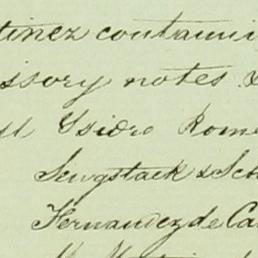 tinez containi
issory notes &
Ysidro Rome
Sengstack & Sch
Fernandez de Ca